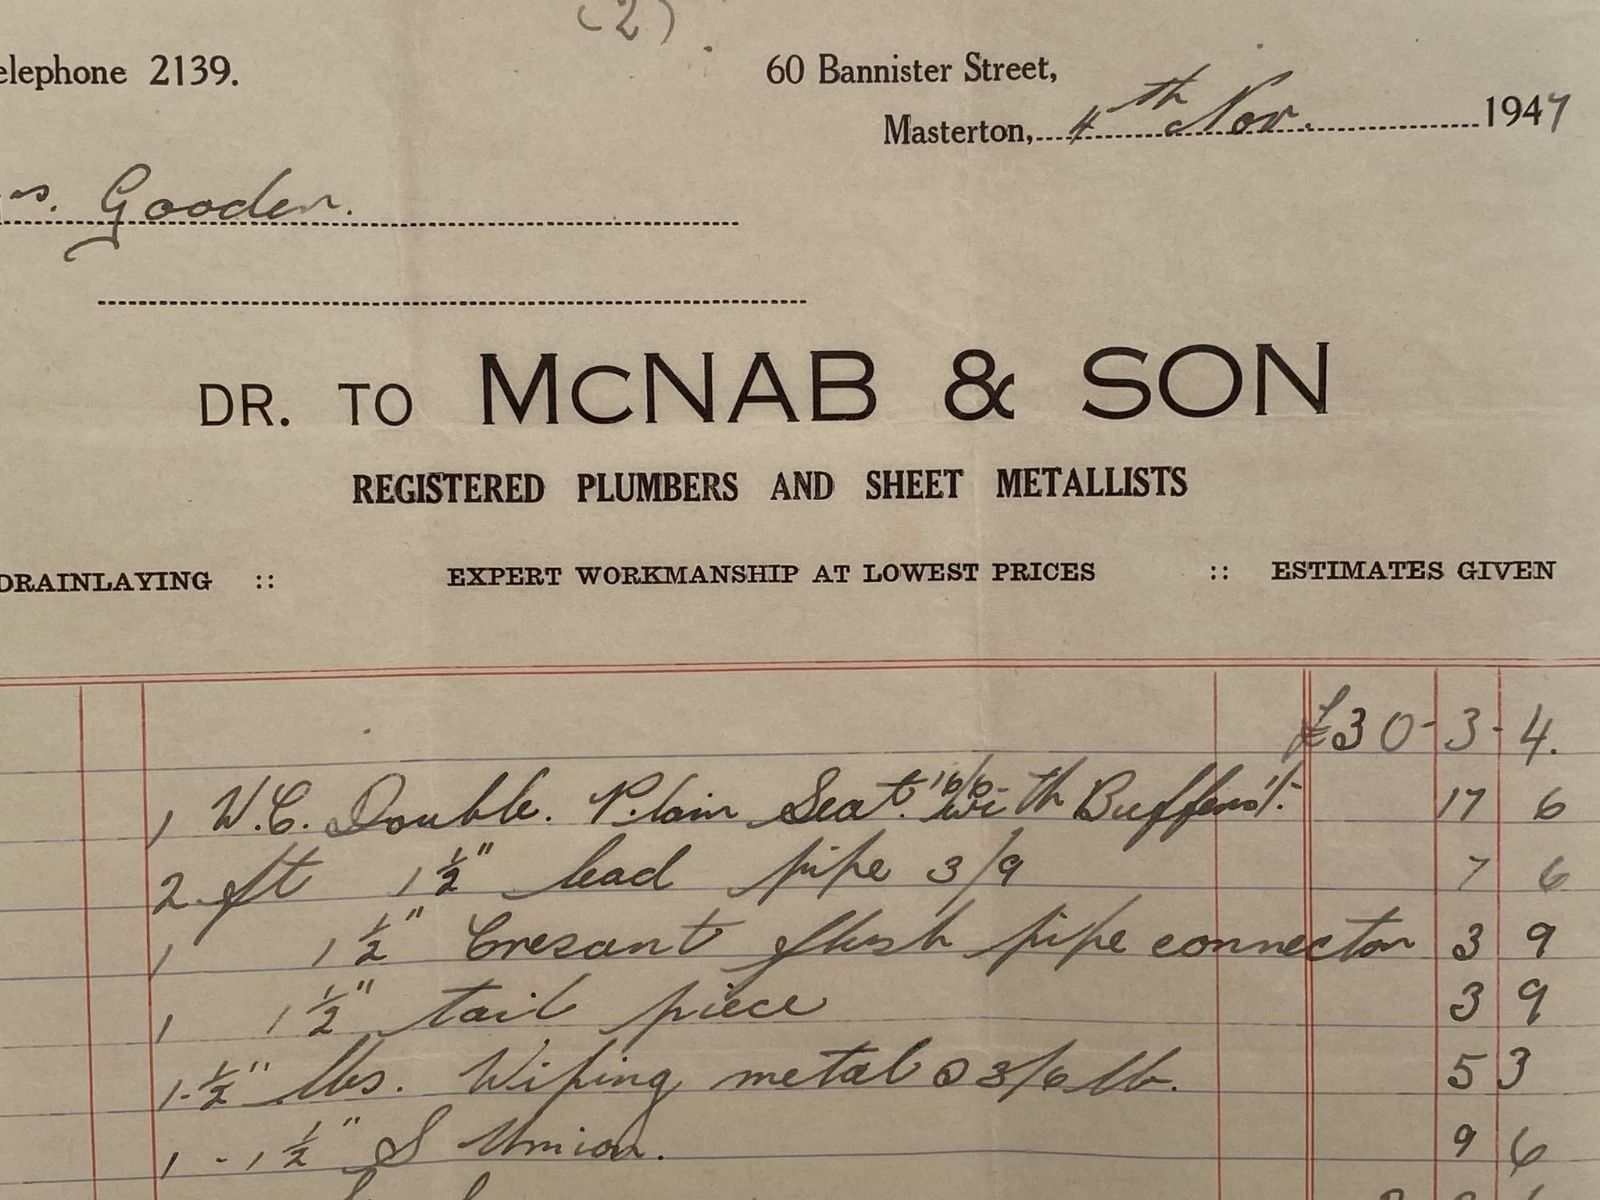 (2)
elephone 2139.
60 Bannister Street,
Masterton, 4th Nov. 1947
s. Gooden.
DR. TO McNAB & SON
REGISTERED PLUMBERS AND SHEET METALLISTS
DRAINLAYING :: EXPERT WORKMANSHIP AT LOWEST PRICES :: ESTIMATES GIVEN
£30-3-4.
1 W.C. Double. Plain Seat. 16/6 with Buffers 1/- 17 6
2 ft 1½" lead pipe 3/9 7 6
1 1½" Cresant flush pipe connector 3 9
1 1½" tail piece 3 9
1-½" lbs. Wiping metal @ 3/6 lb. 5 3
1 - 1½" S Union. 9 6